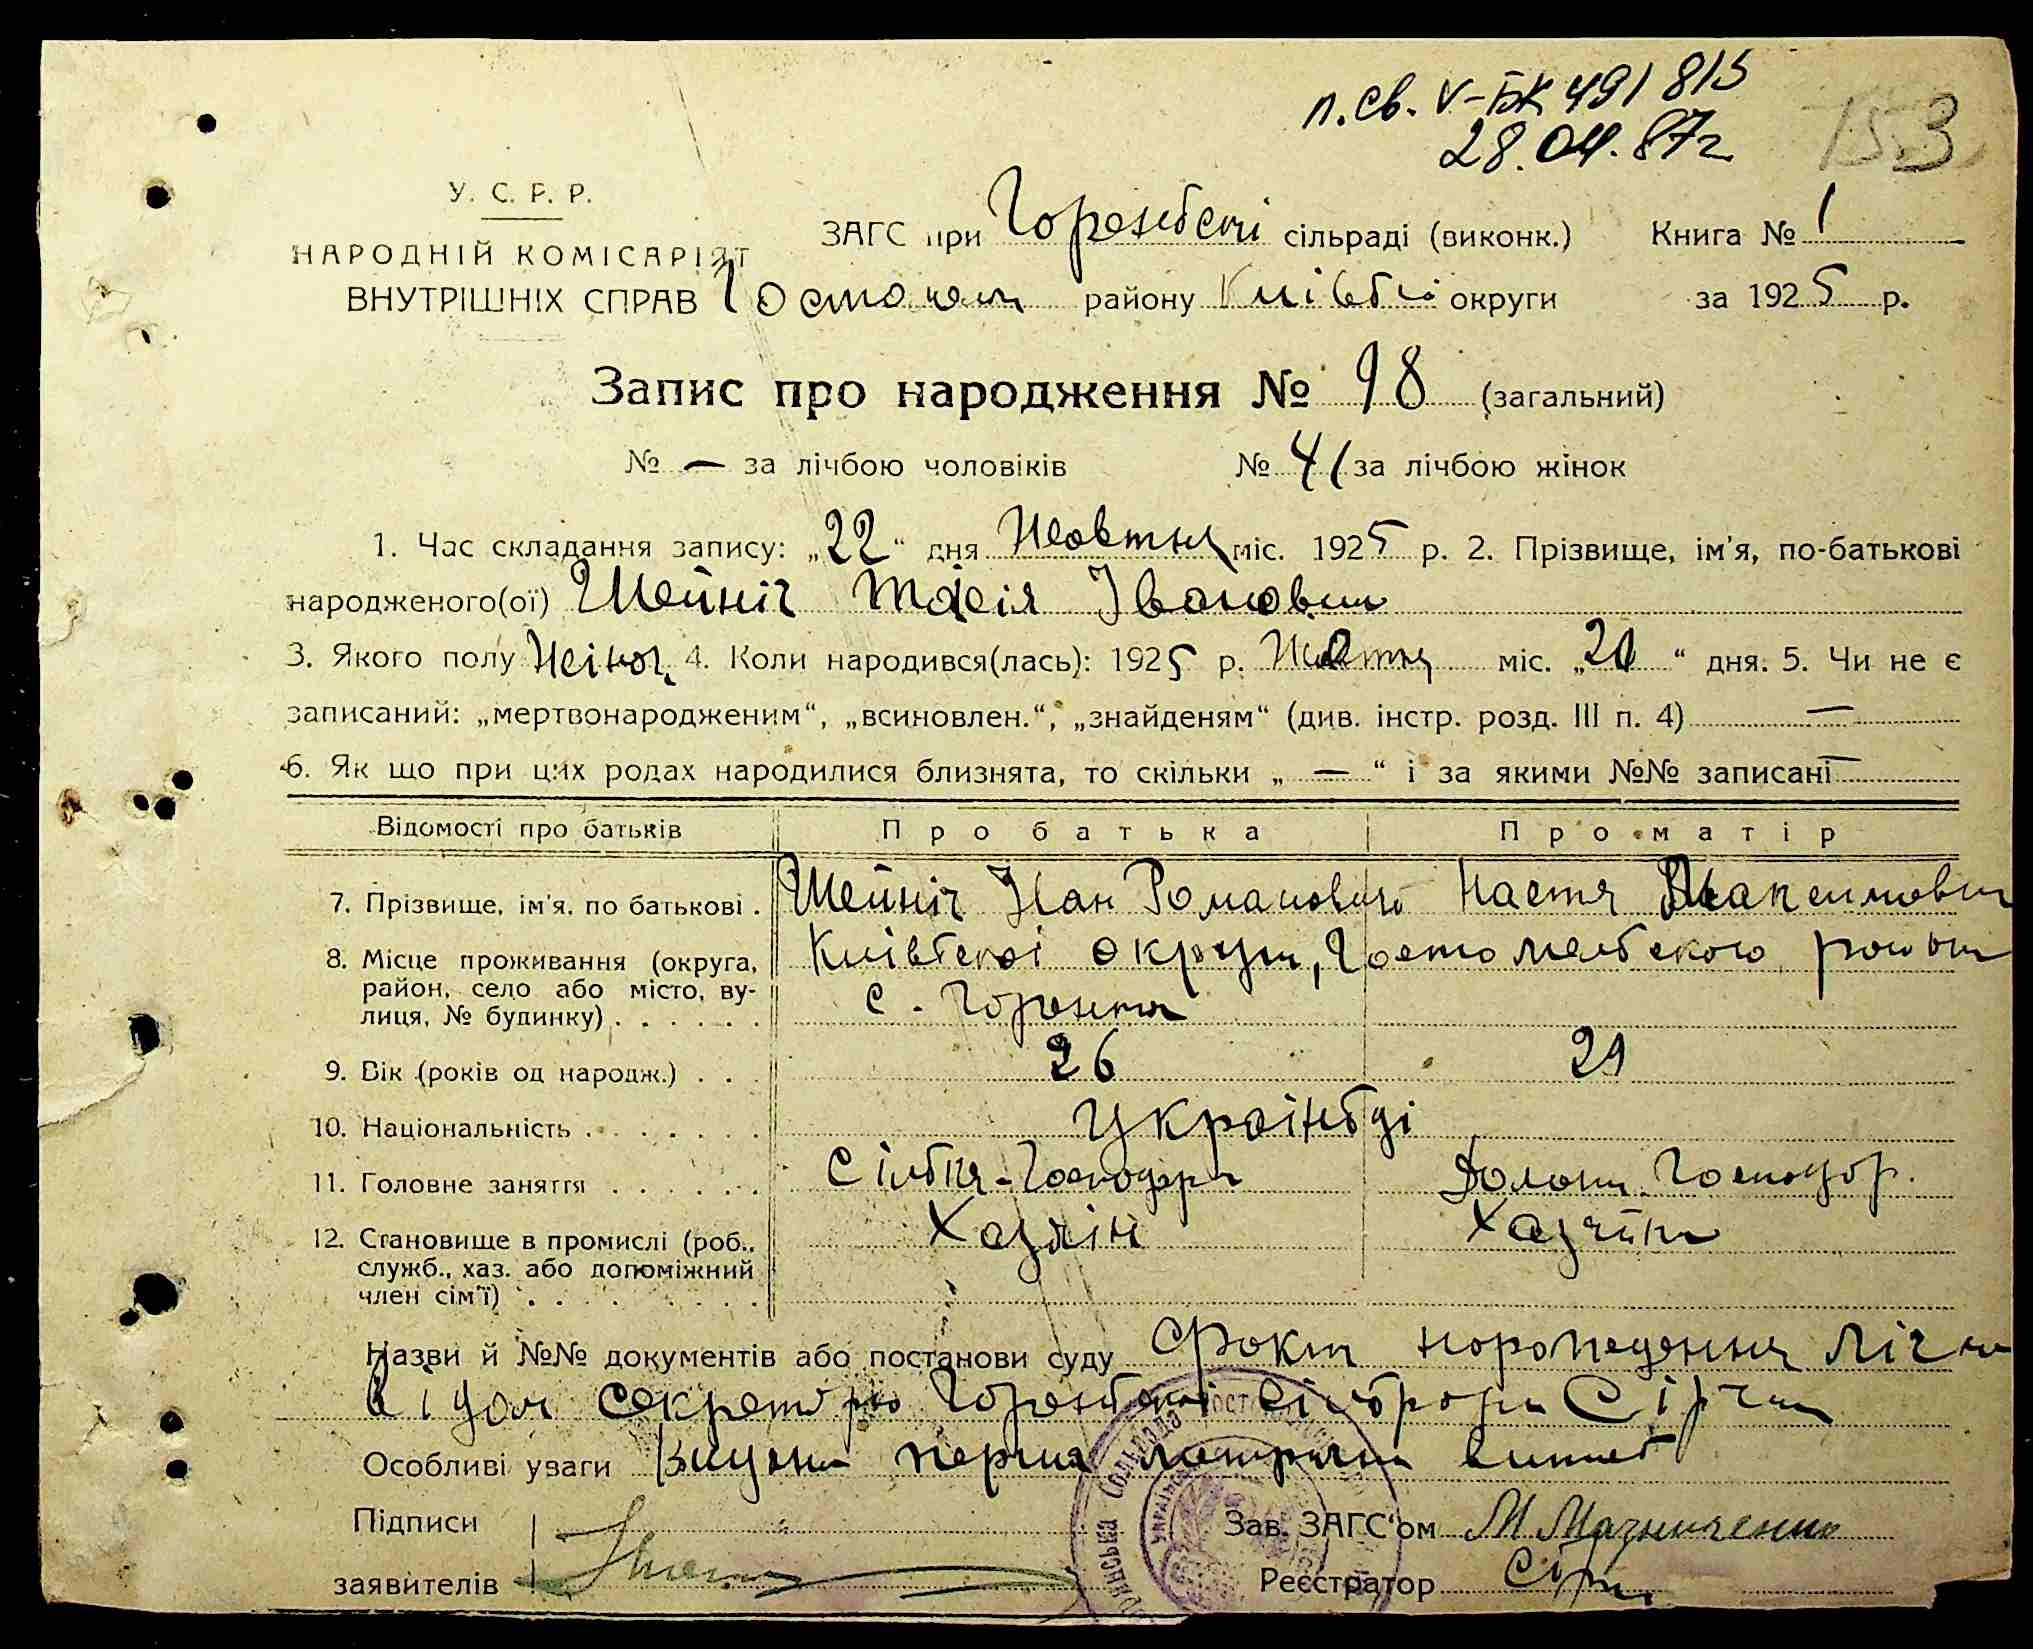 п. св. V-БК 491815
28.04.87г
153
У. С. Р. Р.
НАРОДНІЙ КОМІСАРІЯТ
ВНУТРІШНІХ СПРАВ
ЗАГС при Горенській сільраді (виконк.) Книга № 1
Гостомел району Київській округи за 1925 р.
Запис про народження № 98 (загальний)
№ — за лічбою чоловіків № 41 за лічбою жінок
1. Час складання запису: „22“ дня Жовтня міс. 1925 р. 2. Прізвище, ім'я, по-батькові
народженого(ої) Шейніч Таісія Івановна
3. Якого полу Жіноч. 4. Коли народився(лась): 1925 р. Жовтня міс. „20“ дня. 5. Чи не є
записаний: „мертвонародженим“, „всиновлен.“, „знайденям“ (див. інстр. розд. III п. 4) —
6. Як що при цих родах народилися близнята, то скільки „ — “ і за якими №№ записані —
Відомості про батьків Про батька Про матір
7. Прізвище, ім'я, по батькові . Шейніч Іван Романович Настя Максимовна
8. Місце проживання (округа, район, село або місто, вулиця, № будинку) Київської округи, Гостомельського району
с. Горенка
9. Вік (років од народж.) . . 26 29
10. Національність . Українці
11. Головне заняття . Сільске-Господар. Домашн. Господар.
12. Становище в промислі (роб., служб., хаз. або допоміжний член сім'ї) Хазяін Хазяйка
Назви й №№ документів або постанови суду Факт народження лічно
відом секретарю Горенської сільради Сірчен
Особливі уваги Видана перша метрична випись
Підписи
заявителів
Зав. ЗАГС'ом М Мазниченко
Реєстратор